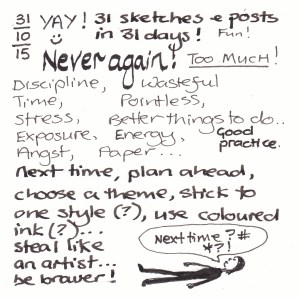 31
10
15
YAY! 31 sketches & posts
in 31 days! Fun!
Never again! Too Much!
Discipline, Wasteful
Time, Pointless,
Stress, Better things to do..
Exposure, Energy, Good
Angst, Paper... practice.
Next time, plan ahead,
choose a theme, stick to
one style (?), use coloured
ink (?)....
steal like
an artist...
be braver!
Next time?#
*?!